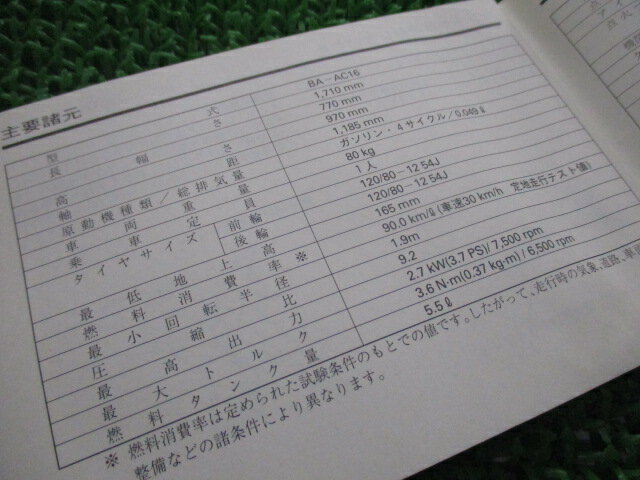 主要諸元
型式 BA－AC16
長さ 1,710 mm
幅 770 mm
高さ 970 mm
軸距 1,185 mm
原動機種類／総排気量 ガソリン・4サイクル／0.049ℓ
車両重量 80 kg
乗車定員 1人
タイヤサイズ 前輪 120/80－12 54J
後輪 120/80－12 54J
最低地上高 165 mm
燃料消費率※ 90.0 km/ℓ(車速30 km/h 定地走行テスト値)
最小回転半径 1.9m
圧縮比 9.2
最高出力 2.7 kW(3.7 PS)/7,500 rpm
最大トルク 3.6 N·m(0.37 kg-m)/6,500 rpm
燃料タンク量 5.5ℓ
※ 燃料消費率は定められた試験条件のもとでの値です。したがって、走行時の気象、道路、車両、
整備などの諸条件により異なります。